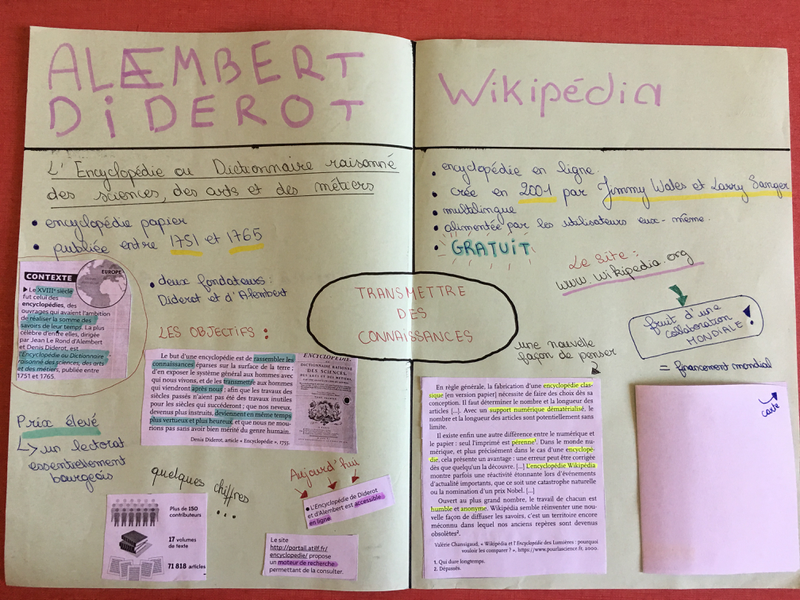 ALÆMBERT
DIDEROT
L'Encyclopédie ou Dictionnaire raisonné
des sciences, des arts et des métiers
• encyclopédie papier
• publiée entre 1751 et 1765
CONTEXTE
EUROPE
► Le XVIIIe siècle
fut celui des
encyclopédies, des
ouvrages qui avaient l'ambition
de réaliser la somme des
savoirs de leur temps. La plus
célèbre d'entre elles, dirigée
par Jean Le Rond d'Alembert
et Denis Diderot, est
l'Encyclopédie ou Dictionnaire
raisonné des sciences, des arts
et des métiers, publiée entre
1751 et 1765.
• deux fondateurs :
Diderot et d'Alembert
LES OBJECTIFS :
Le but d'une encyclopédie est de rassembler les
connaissances éparses sur la surface de la terre ;
d'en exposer le système général aux hommes avec
qui nous vivons, et de les transmettre aux hommes
qui viendront après nous ; afin que les travaux des
siècles passés n'aient pas été des travaux inutiles
pour les siècles qui succéderont ; que nos neveux,
devenus plus instruits, deviennent en même temps
plus vertueux et plus heureux, et que nous ne mou-
rions pas sans avoir bien mérité du genre humain.
Denis Diderot, article « Encyclopédie », 1755.
ENCYCLOPÉDIE,
DICTIONNAIRE RAISONNÉ
DES SCIENCES,
Prix élevé
↳ un lectorat
essentiellement
bourgeois
quelques chiffres
...
Plus de 150
contributeurs
17 volumes
de texte
71 818 articles
Aujourd'hui
• L'Encyclopédie de Diderot
et d'Alembert est accessible
en ligne.
Le site
http://portail.atilf.fr/
encyclopedie/ propose
un moteur de recherche
permettant de la consulter.
TRANSMETTRE
DES
CONNAISSANCES
Wikipédia
• encyclopédie en ligne
• crée en 2001 par Jimmy Wales et Larry Sanger
• multilingue
• alimentée par les utilisateurs eux-même.
• GRATUIT
Le site :
www.wikipedia.org
fruit d'une
collaboration
MONDIALE !
= financement mondial
une nouvelle
façon de penser
En règle générale, la fabrication d'une encyclopédie clas-
sique [en version papier] nécessite de faire des choix dès sa
conception. Il faut déterminer le nombre et la longueur des
articles [...]. Avec un support numérique dématérialisé, le
nombre et la longueur des articles sont potentiellement sans
limite.
Il existe enfin une autre différence entre le numérique et
le papier : seul l'imprimé est pérenne1. Dans le monde nu-
mérique, et plus précisément dans le cas d'une encyclopé-
die, cela présente un avantage : une erreur peut être corrigée
dès que quelqu'un la découvre. [...] L'encyclopédie Wikipédia
montre parfois une réactivité étonnante lors d'événements
d'actualité importants, que ce soit une catastrophe naturelle
ou la nomination d'un prix Nobel. [...]
Ouvert au plus grand nombre, le travail de chacun est
humble et anonyme. Wikipédia semble réinventer une nou-
velle façon de diffuser les savoirs, c'est un territoire encore
méconnu dans lequel nos anciens repères sont devenus
obsolètes2.
Valérie Chansigaud, « Wikipédia et l'Encyclopédie des Lumières : pourquoi
vouloir les comparer ? », https://www.pourlascience.fr,
1. Qui dure longtemps.
2. Dépassés
carte